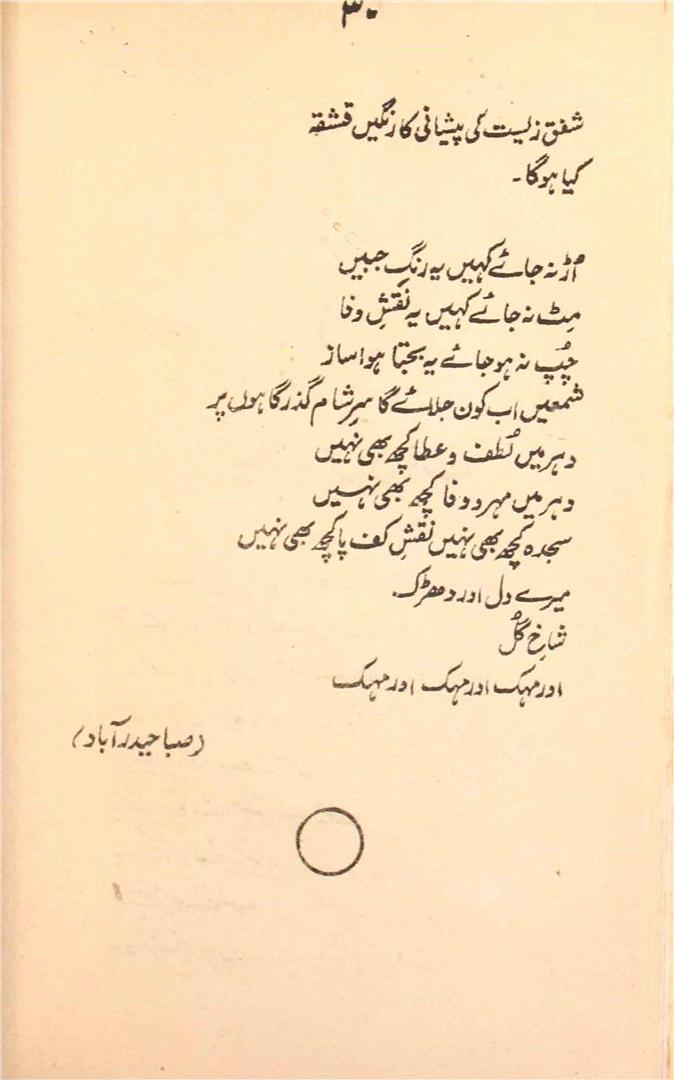 ۳۰
شفق زیست کی پیشانی کا رنگیں قشقہ
کیا ہوگا۔
اُڑ نہ جائے کہیں یہ رنگِ جبیں
مِٹ نہ جائے کہیں یہ نقشِ وفا
چُپ نہ ہو جائے یہ بجتا ہوا ساز
شمعیں اب کون جلائے گا سرِ شام گذرگاہوں پر
دہر میں لُطف و عطا کچھ بھی نہیں
دہر میں مہر و وفا کچھ بھی نہیں
سجدہ کچھ بھی نہیں نقشِ کف پا کچھ بھی نہیں
میرے دل اور دھڑک
شاخِ گُل
اور مہک اور مہک اور مہک
(صبا حیدرآباد)